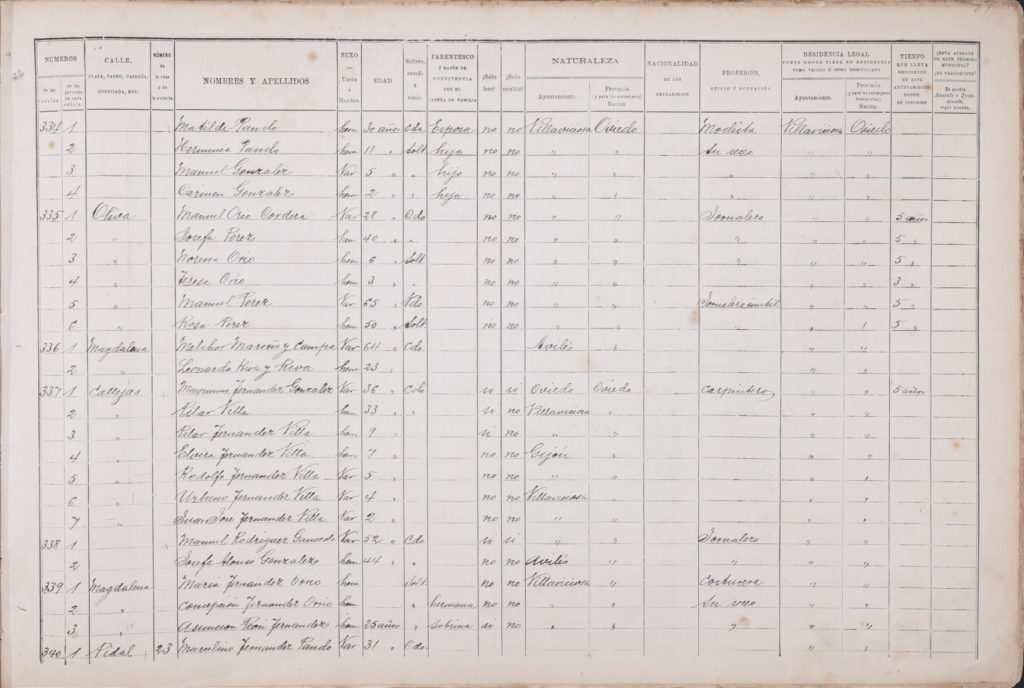 NÚMEROS | CALLE, PLAZA, PASEO, CASERÍO, CORTIJADA, ETC. | NÚMERO de la casa ó de la vivienda | NOMBRES Y APELLIDOS | SEXO — Varón ó Hembra | EDAD | Soltero, casado ó viudo | PARENTESCO Ó RAZÓN DE CONVIVENCIA CON EL CABEZA DE FAMILIA | ¿Sabe leer? | ¿Sabe escribir? | NATURALEZA | NACIONALIDAD DE LOS EXTRANJEROS | PROFESIÓN, OFICIO Y OCUPACIÓN | RESIDENCIA LEGAL | TIEMPO QUE LLEVA RESIDIENDO EN ESTE AYUNTAMIENTO
Ayuntamiento. | Provincia (y para los extranjeros) Nación. | Ayuntamiento. | Provincia Nación.
334 1 Matilde Pando hem 30 años Cda Esposa no no Villaviciosa Oviedo Modista Villaviciosa Oviedo
2 Herminia Pando hem 11 " Solt hija no no " " Su sexo " "
3 Manuel Gonzalez Var 5 " " hijo no no " " " " "
4 Carmen Gonzalez hem 2 " " hija no no " " "
335 1 Oliva Manuel Orio Cordera Var 28 " Cdo no no " " Jornalero " " 5 años
2 " Josefa Perez hem 40 " " no no " " " " " 5 "
3 " Norina Orio hem 6 " Solt no no " " " " " 5 "
4 " Teresa Orio hem 3 " " no no " " " " 3 "
5 " Manuel Perez Var 65 " Vdo no no " " Jornalero inutil " " 5 "
6 " Rosa Perez hem 50 " Solt no no " " " " 5 "
336 1 Magdalena Melchor y Campa Var 64 " Cdo Avilés " "
2 " Leonarda Riva y Riva hem 23 " "
337 1 Callejas Maximino Fernandez Gonzalez Var 36 " Cdo si si Oviedo Oviedo Carpintero " " 5 años
2 " Pilar Villa hem 33 " " si no Villaviciosa " " "
3 " Pilar Fernandez Villa hem 9 " si no " " " "
4 " Elvira Fernandez Villa hem 7 " no no Gijón " " "
5 " Rodolfo Fernandez Villa Var 5 " no no " " "
6 " Urbano Fernandez Villa Var 4 " no no Villaviciosa " " "
7 " Juan José Fernandez Villa Var 2 " no no " " " "
338 1 Manuel Rodriguez Var 52 " Cdo si si " " Jornalero " "
2 Josefa Alonso Gonzalez hem 44 " " no no Avilés " " " "
339 1 Magdalena Maria Fernandez Orrio hem Solt no no Villaviciosa " Costurera " "
2 " Concepción Fernandez Orrio hem " hermana no no " " Su sexo " "
3 " Asunción Fernandez hem 25 años " Sobrina si no " " " " "
340 1 Vidal 23 Marcelino Fernandez Pando Var 31 " Cdo " "